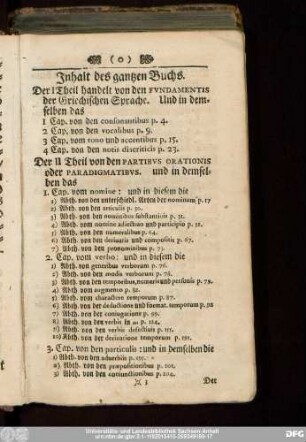 (o)
Inhalt des gantzen Buchs.
Der I Theil handelt von den FVNDAMENTIS
der Griechischen Sprache. Und in dem-
selben das
1 Cap. von den consonantibus p. 4.
2 Cap. von den vocalibus p. 9.
3 Cap. vom tono und accentibus p. 15.
4 Cap. von den notis diacriticis p. 23.
Der II Theil von den PARTIBVS ORATIONIS
oder PARADIGMATIBVS. und in demsel-
ben das
1. Cap. vom nomine: und in diesem die
1) Abth. von der unterschiedl. Arten der nominum p. 17
2) Abth. von den articulis p. 30.
3) Abth. von den nominibus substantivis p. 31.
4) Abth. vom nomine adiectivo und participio p. 51.
5) Abth. von den numeralibus p. 64.
6) Abth. von den derivatis und compositis p. 67.
7) Abth. von den pronominibus p. 73.
2. Cap. vom verbo: und in diesem die
1) Abth. von generibus verborum p. 76.
2) Abth. von den modis verborum p. 78.
3) Abth. von den temporibus, numeris und personis p. 78.
4) Abth. vom augmento p. 81.
5) Abth. vom charactere temporum p. 87.
6) Abth. von der deductione und format. temporum p. 92
7) Abth. von der coniugatione p. 99.
8) Abth. von den verbis in p. 124.
9) Abth. von den verbis defectivis p. 153.
10) Abth. von der derivatione temporum p. 181.
3. Cap. von den particulis: und in demselben die
1) Abth. von den adverbiis p. 191.
2) Abth. von den praepositionibus p. 201.
3) Abth. von den coniunctionibus p. 204.
Der
Universitäts- und Landesbibliothek Sachsen-Anhalt